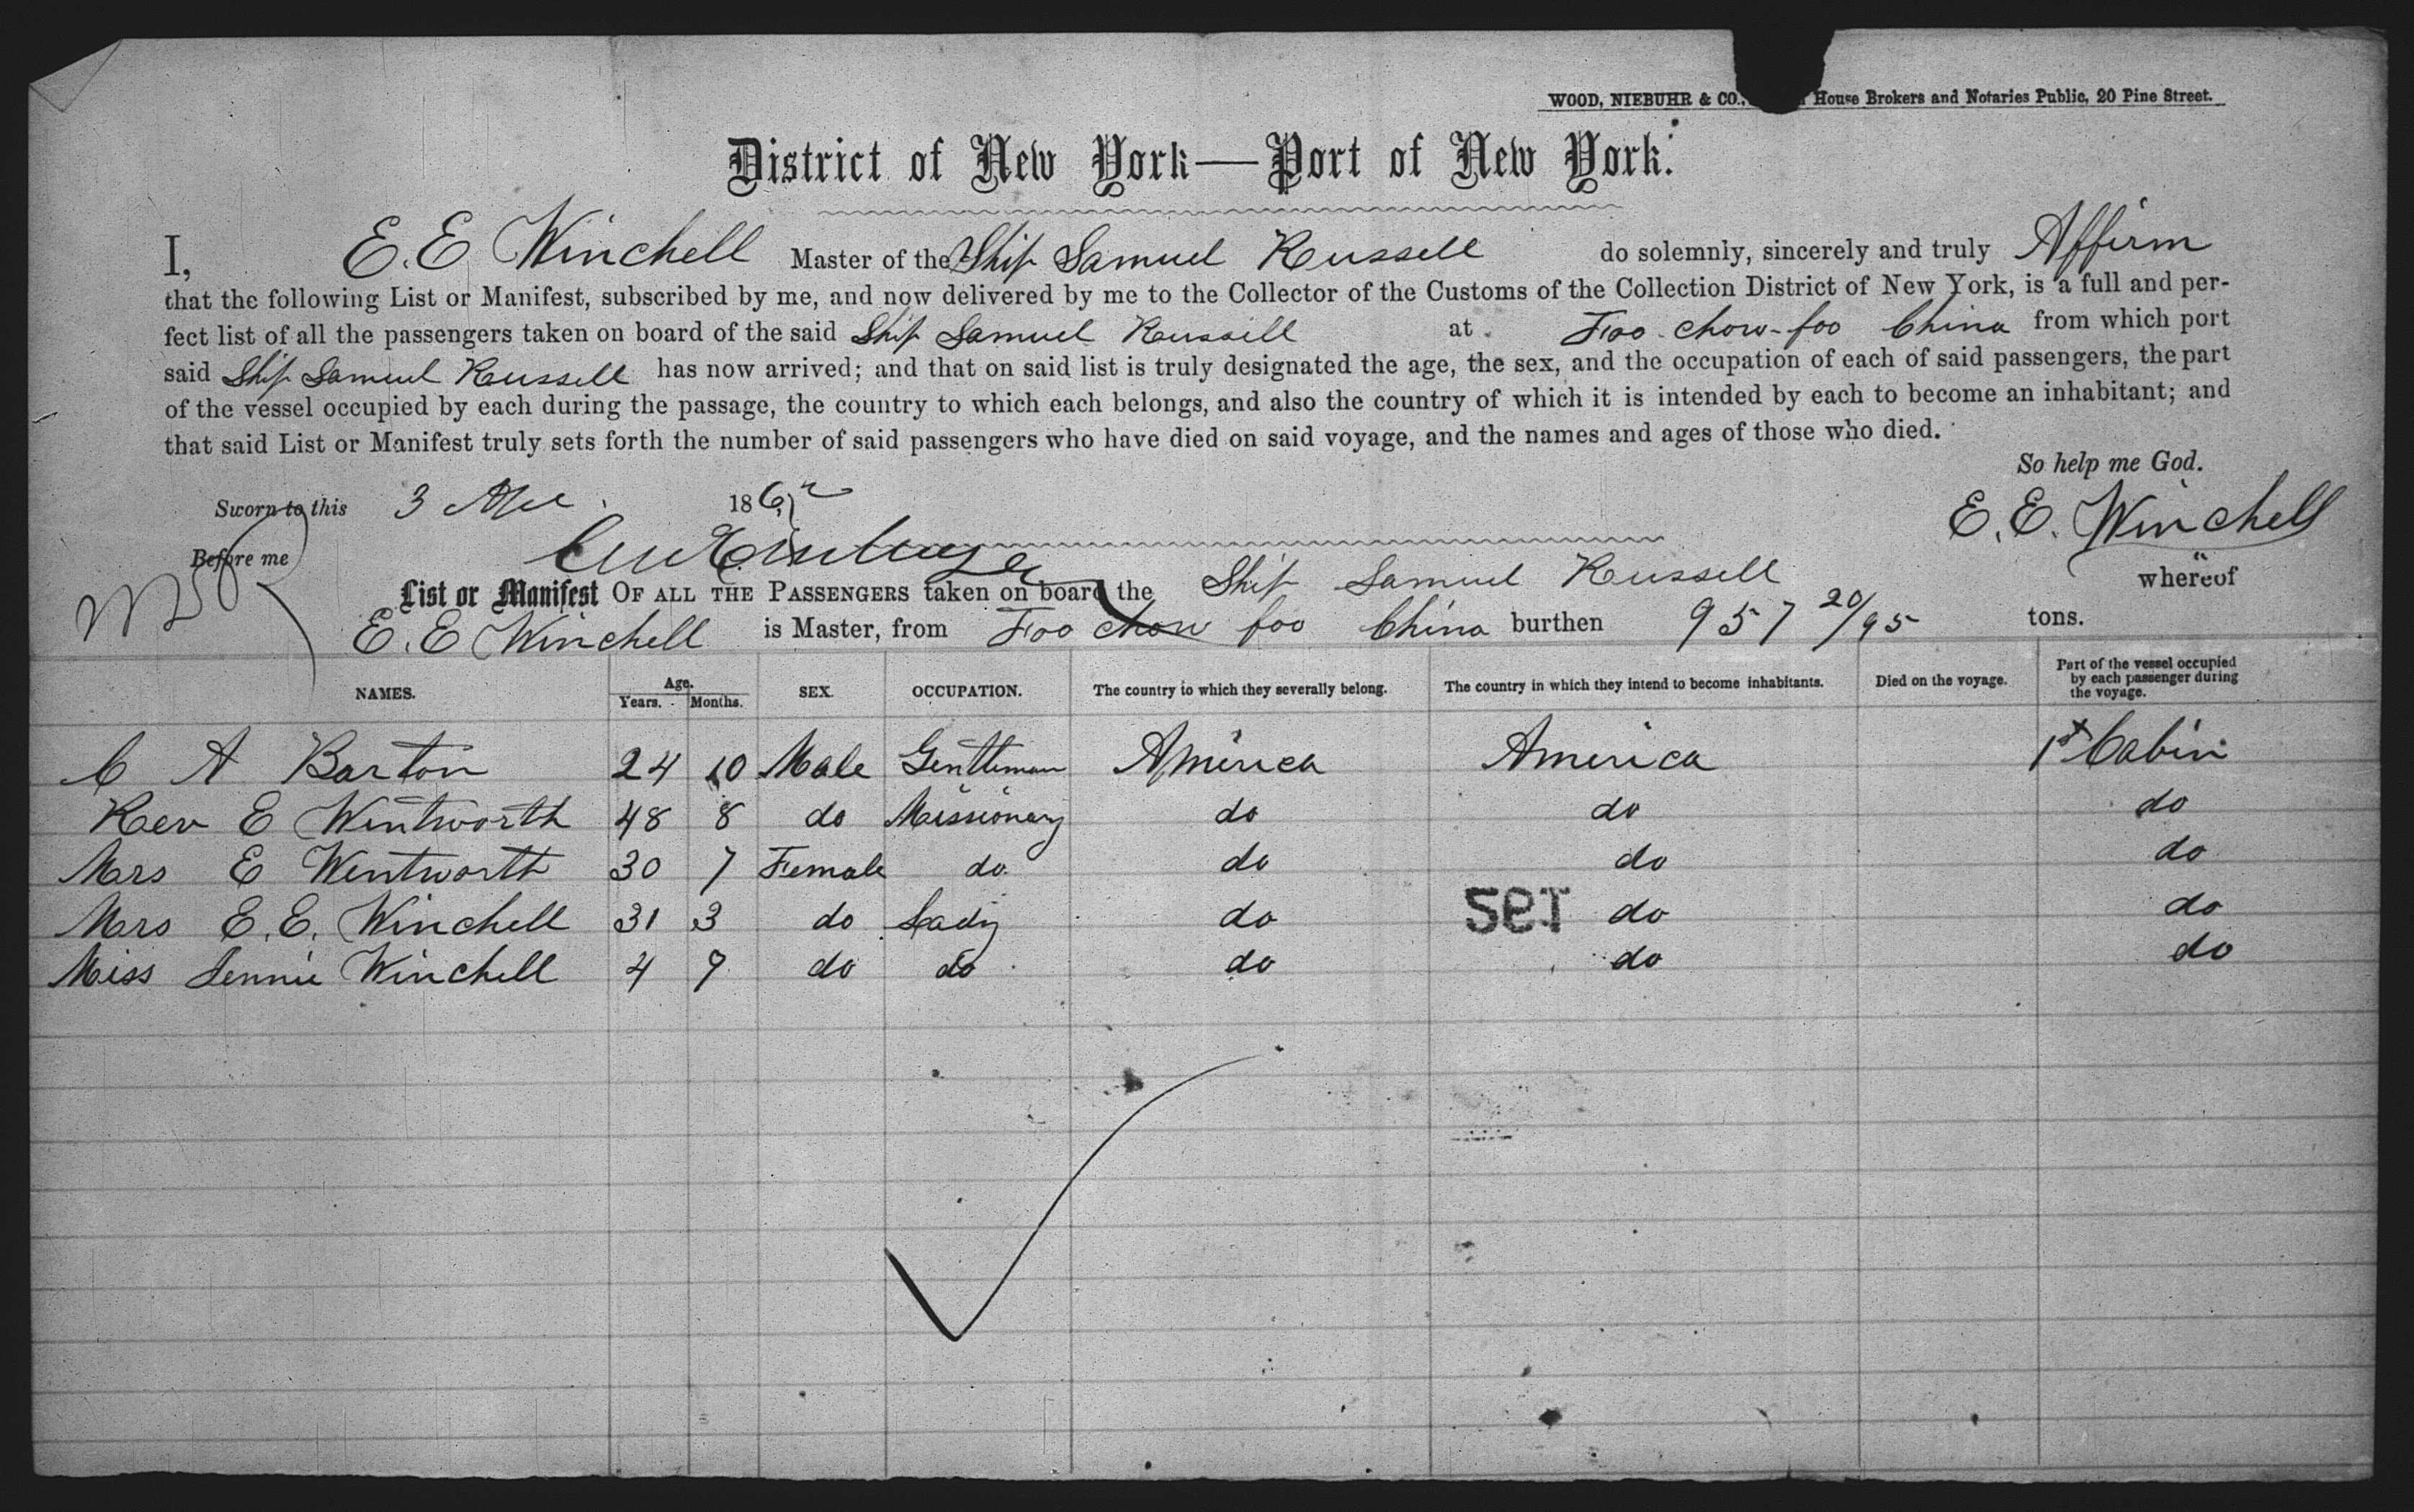 WOOD, NIEBUHR & CO., House Brokers and Notaries Public, 20 Pine Street.
District of New York—Port of New York.
I, E. E Winchell Master of the Ship Samuel Russell do solemnly, sincerely and truly Affirm
that the following List or Manifest, subscribed by me, and now delivered by me to the Collector of the Customs of the Collection District of New York, is a full and per-
fect list of all the passengers taken on board of the said Ship Samuel Russell at Foo-chow-foo China from which port
said Ship Samuel Russell has now arrived; and that on said list is truly designated the age, the sex, and the occupation of each of said passengers, the part
of the vessel occupied by each during the passage, the country to which each belongs, and also the country of which it is intended by each to become an inhabitant; and
that said List or Manifest truly sets forth the number of said passengers who have died on said voyage, and the names and ages of those who died.
So help me God.
Sworn to this 3 1862
E. E. Winchell
Before me
List or Manifest OF ALL THE PASSENGERS taken on board the Ship Samuel Russell whereof
E. E Winchell is Master, from Foo chow foo China burthen 957 20/95 tons.
NAMES. Age. Years. Months. SEX. OCCUPATION. The country to which they severally belong. The country in which they intend to become inhabitants. Died on the voyage. Part of the vessel occupied by each passenger during the voyage.
C A Barton 24 10 Male Gentleman America America 1st Cabin
Rev E Wentworth 48 8 do Missionary do do do
Mrs E Wentworth 30 7 Female do do do do
Mrs E. E. Winchell 31 3 do Lady do do do
Miss Jennie Winchell 4 9 do do do do do